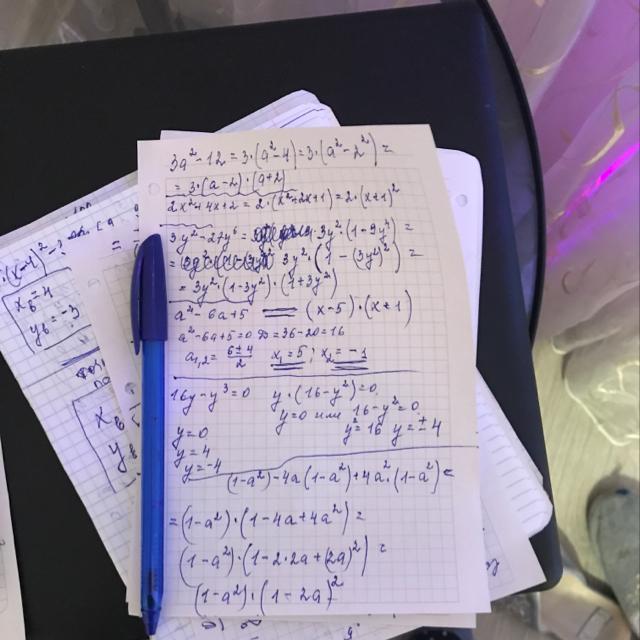 3a² - 12 = 3·(a² - 4) = 3·(a² - 2²) =
= 3·(a - 2)·(a + 2)
2x² + 4x + 2 = 2·(x² + 2x + 1) = 2·(x + 1)²
3y² - 27y⁶ = 3y²(1 - 9y⁴) =
= 3y²·(1 - (3y²)²) =
= 3y²·(1 - 3y²)·(1 + 3y²)
a² - 6a + 5 = (x - 5)·(x + 1)
a² - 6a + 5 = 0 D = 36 - 20 = 16
a₁,₂ = (6 ± 4)/2 x₁ = 5; x₂ = -1
16y - y³ = 0 y·(16 - y²) = 0
y = 0 или 16 - y² = 0
y = 0 y² = 16 y = ± 4
y = 4
y = -4
(1 - a²) - 4a(1 - a²) + 4a²·(1 - a²) =
= (1 - a²)·(1 - 4a + 4a²) =
(1 - a²)·(1 - 2·2a + (2a)²) =
(1 - a²)·(1 - 2a)²